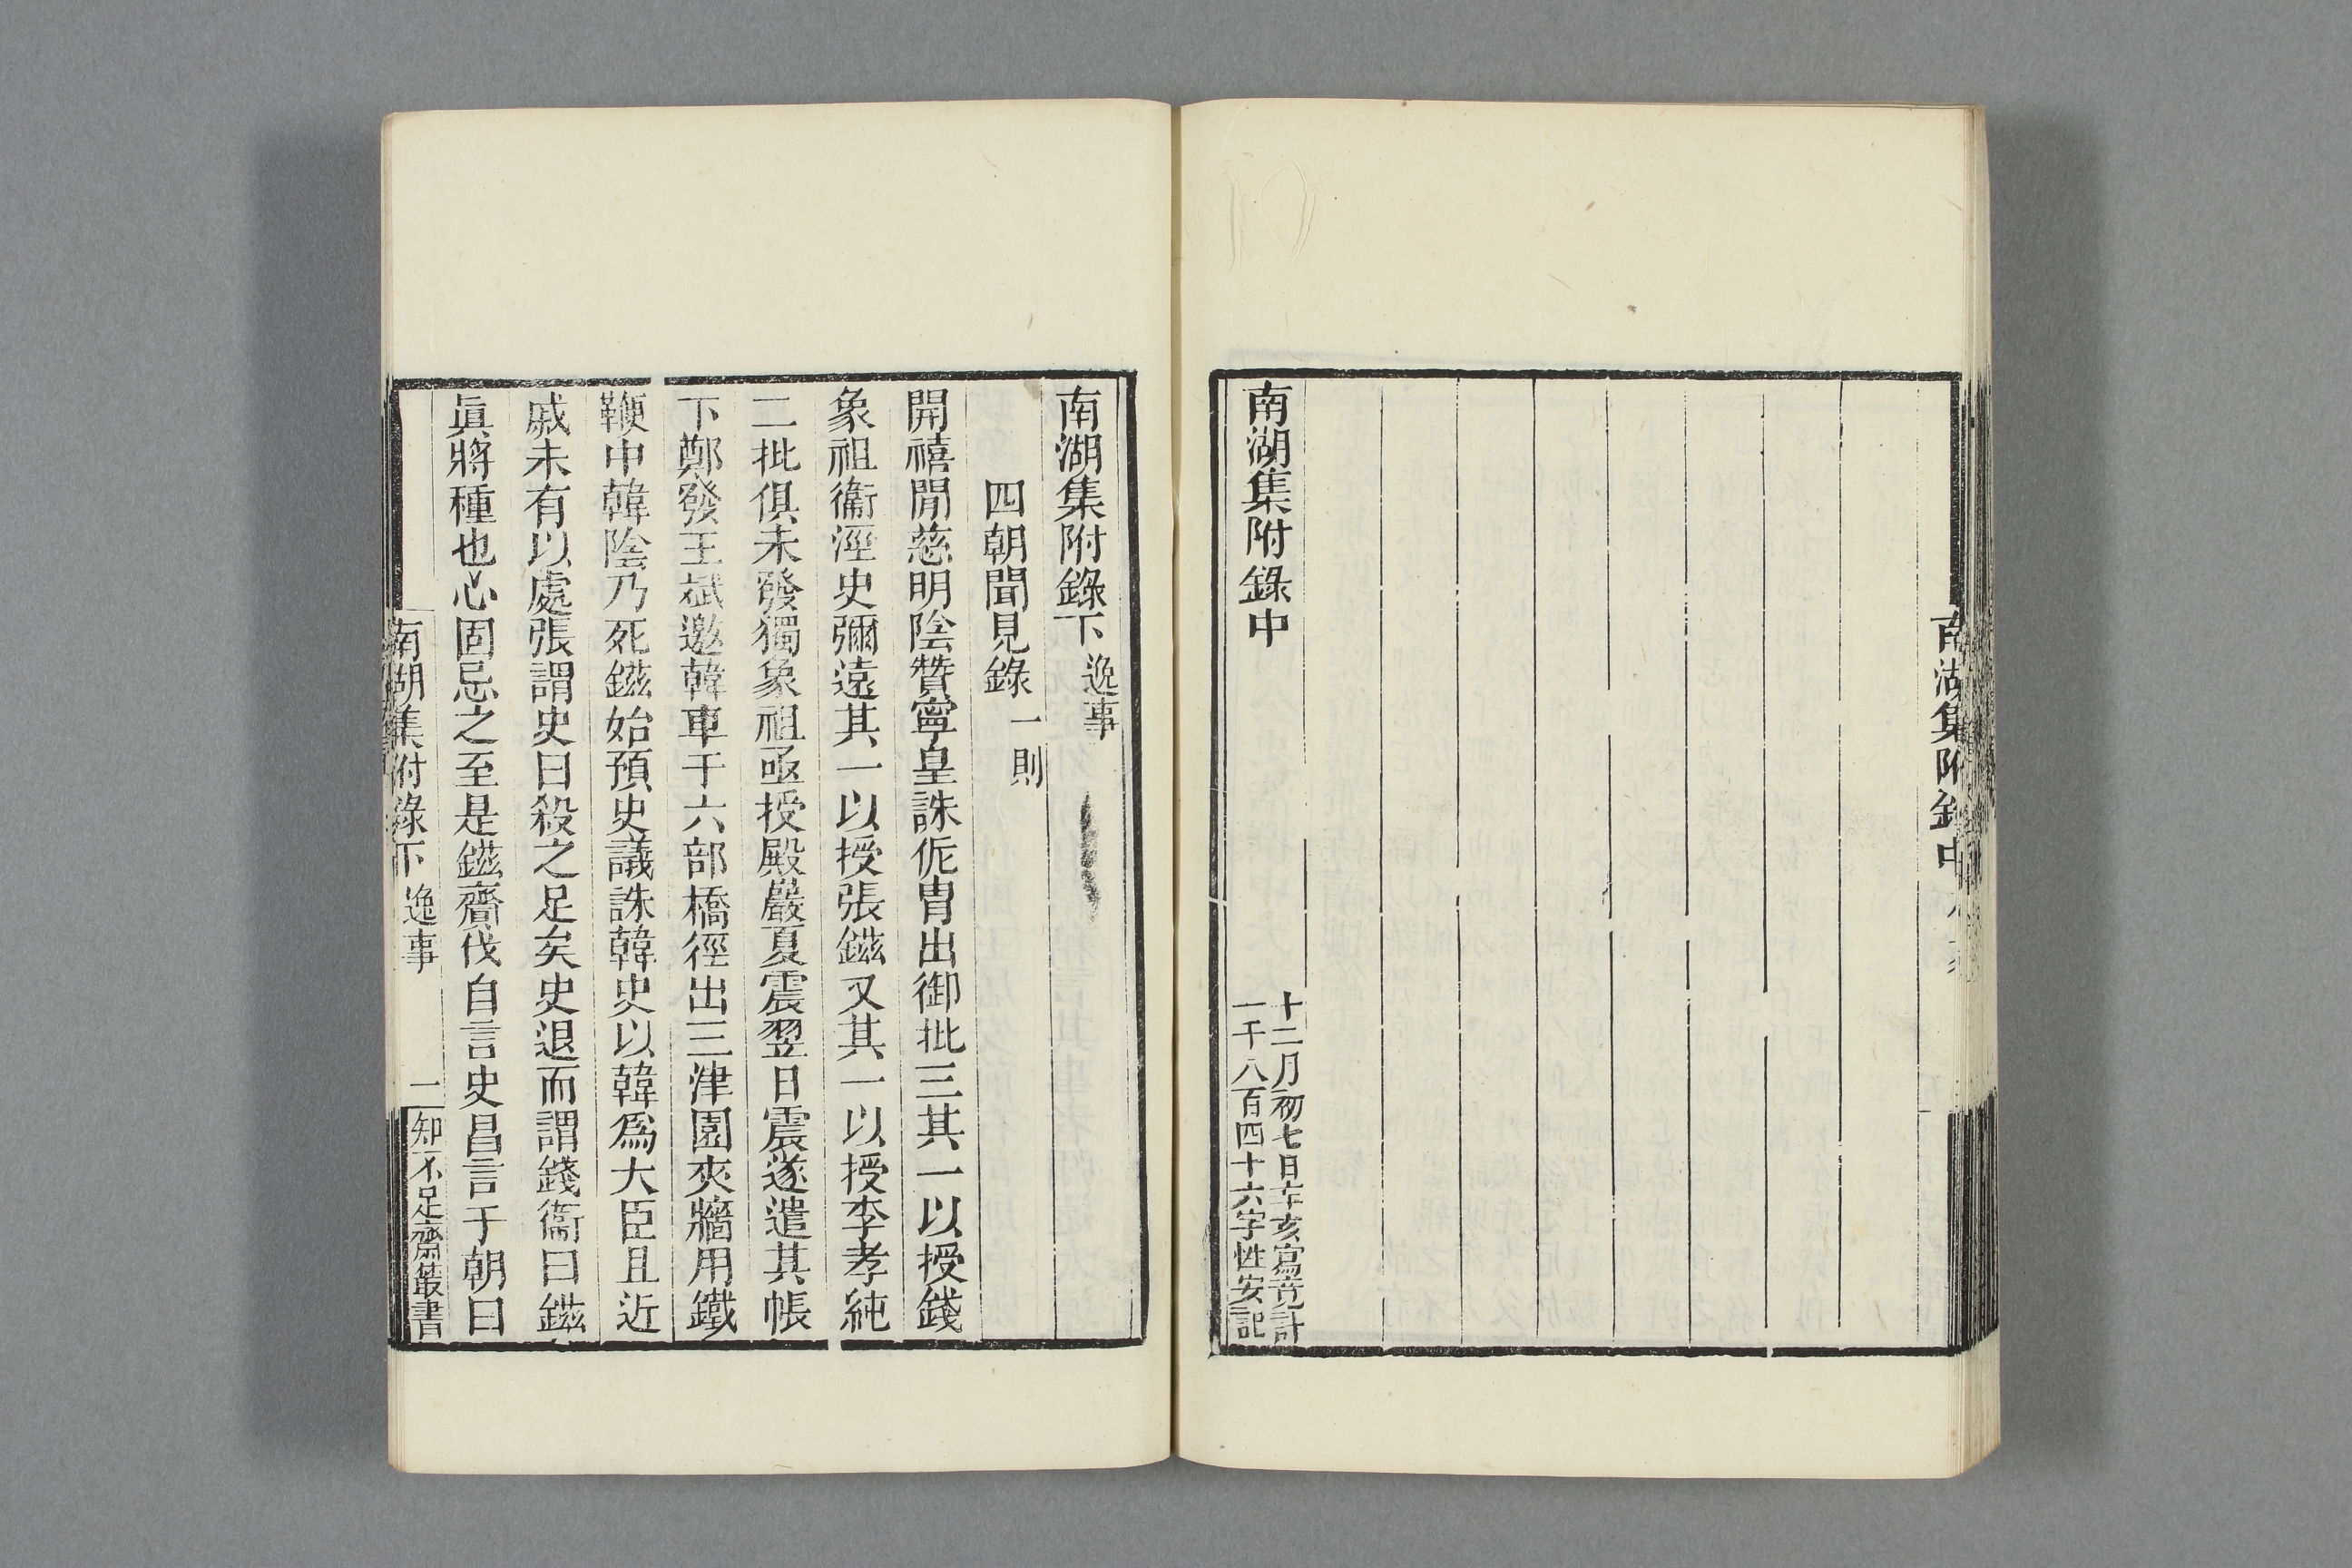 南湖集附錄中
南湖集附錄中
十二月初七日辛亥寫竟計
一千八百四十六字性安記
南湖集附錄下 逸事
四朝聞見錄 一則
開禧閒慈明陰贊寧皇誅侂胄出御批三其一以授錢
象祖衞涇史彌遠其一以授張鎡又其一以授李孝純
二批俱未發獨象祖亟授殿嚴夏震翌日震遂遣其帳
下鄭發王斌邀韓車于六部橋徑出三津園夾牆用鐵
鞭中韓陰乃死鎡始預史議誅韓史以韓爲大臣且近
戚未有以處張謂史曰殺之足矣史退而謂錢衞曰鎡
眞將種也心固忌之至是鎡齎伐自言史昌言于朝曰
南湖集附錄下 逸事 一 知不足齋叢書